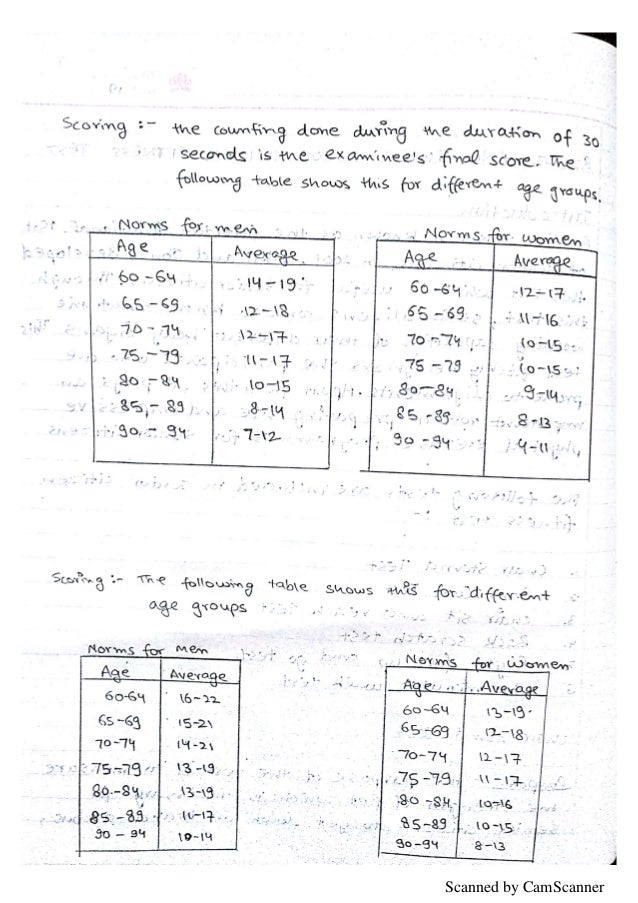 Scoring :- the counting done during the duration of 30
seconds is the examinee's final score. The
following table shows this for different age groups.
Norms for men
Age Average
60-64 14-19
65-69 12-18
70-74 12-17
75-79 11-17
80-84 10-15
85-89 8-14
90-94 7-12
Norms for women
Age Average
60-64 12-17
65-69 11-16
70-74 10-15
75-79 10-15
80-84 9-14
85-89 8-13
90-94 4-11
Scoring :- The following table shows this for different
age groups
Norms for Men
Age Average
60-64 16-22
65-69 15-21
70-74 14-21
75-79 13-19
80-84 13-19
85-89 11-17
90-94 10-14
Norms for Women
Age Average
60-64 13-19
65-69 12-18
70-74 12-17
75-79 11-17
80-84 10-16
85-89 10-15
90-94 8-13
Scanned by CamScanner